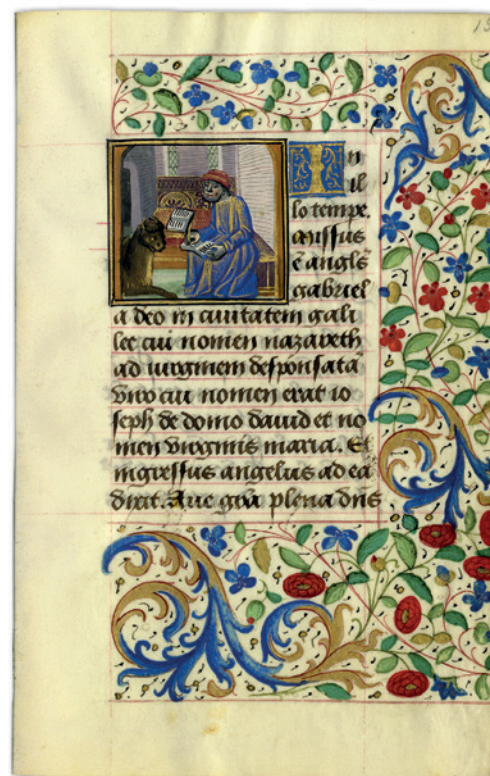 15
In
il
lo tempe.
missus
ē angls̄
gabriel
a deo in ciuitatem gali
lee cui nomen nazareth
ad uirginem desponsatā
viro cui nomen erat io
seph de domo dauid et no
men virginis maria. Et
ingressus angelus ad eā
dixit. Aue grā plena dn̄s